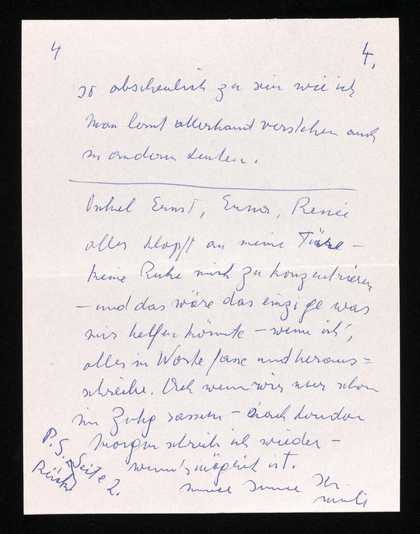 4
4.
so abscheulich zu sein wie ich
Man lernt allerhand verstehen auch
in andern Leuten.
Onkel Ernst, Erna, Renée
alles klopft an meine Türe –
keine Ruhe mich zu konzentrieren
– und das wäre das einzige was
mir helfen könnte – wenn ich's,
alles in Worte fasse und heraus=
schreibe. Ach wenn wir nur schon
im Zug sassen – nach London
Morgen schreib ich wieder –
wenn's möglich ist.
P.S. Seite 2.
immer immer